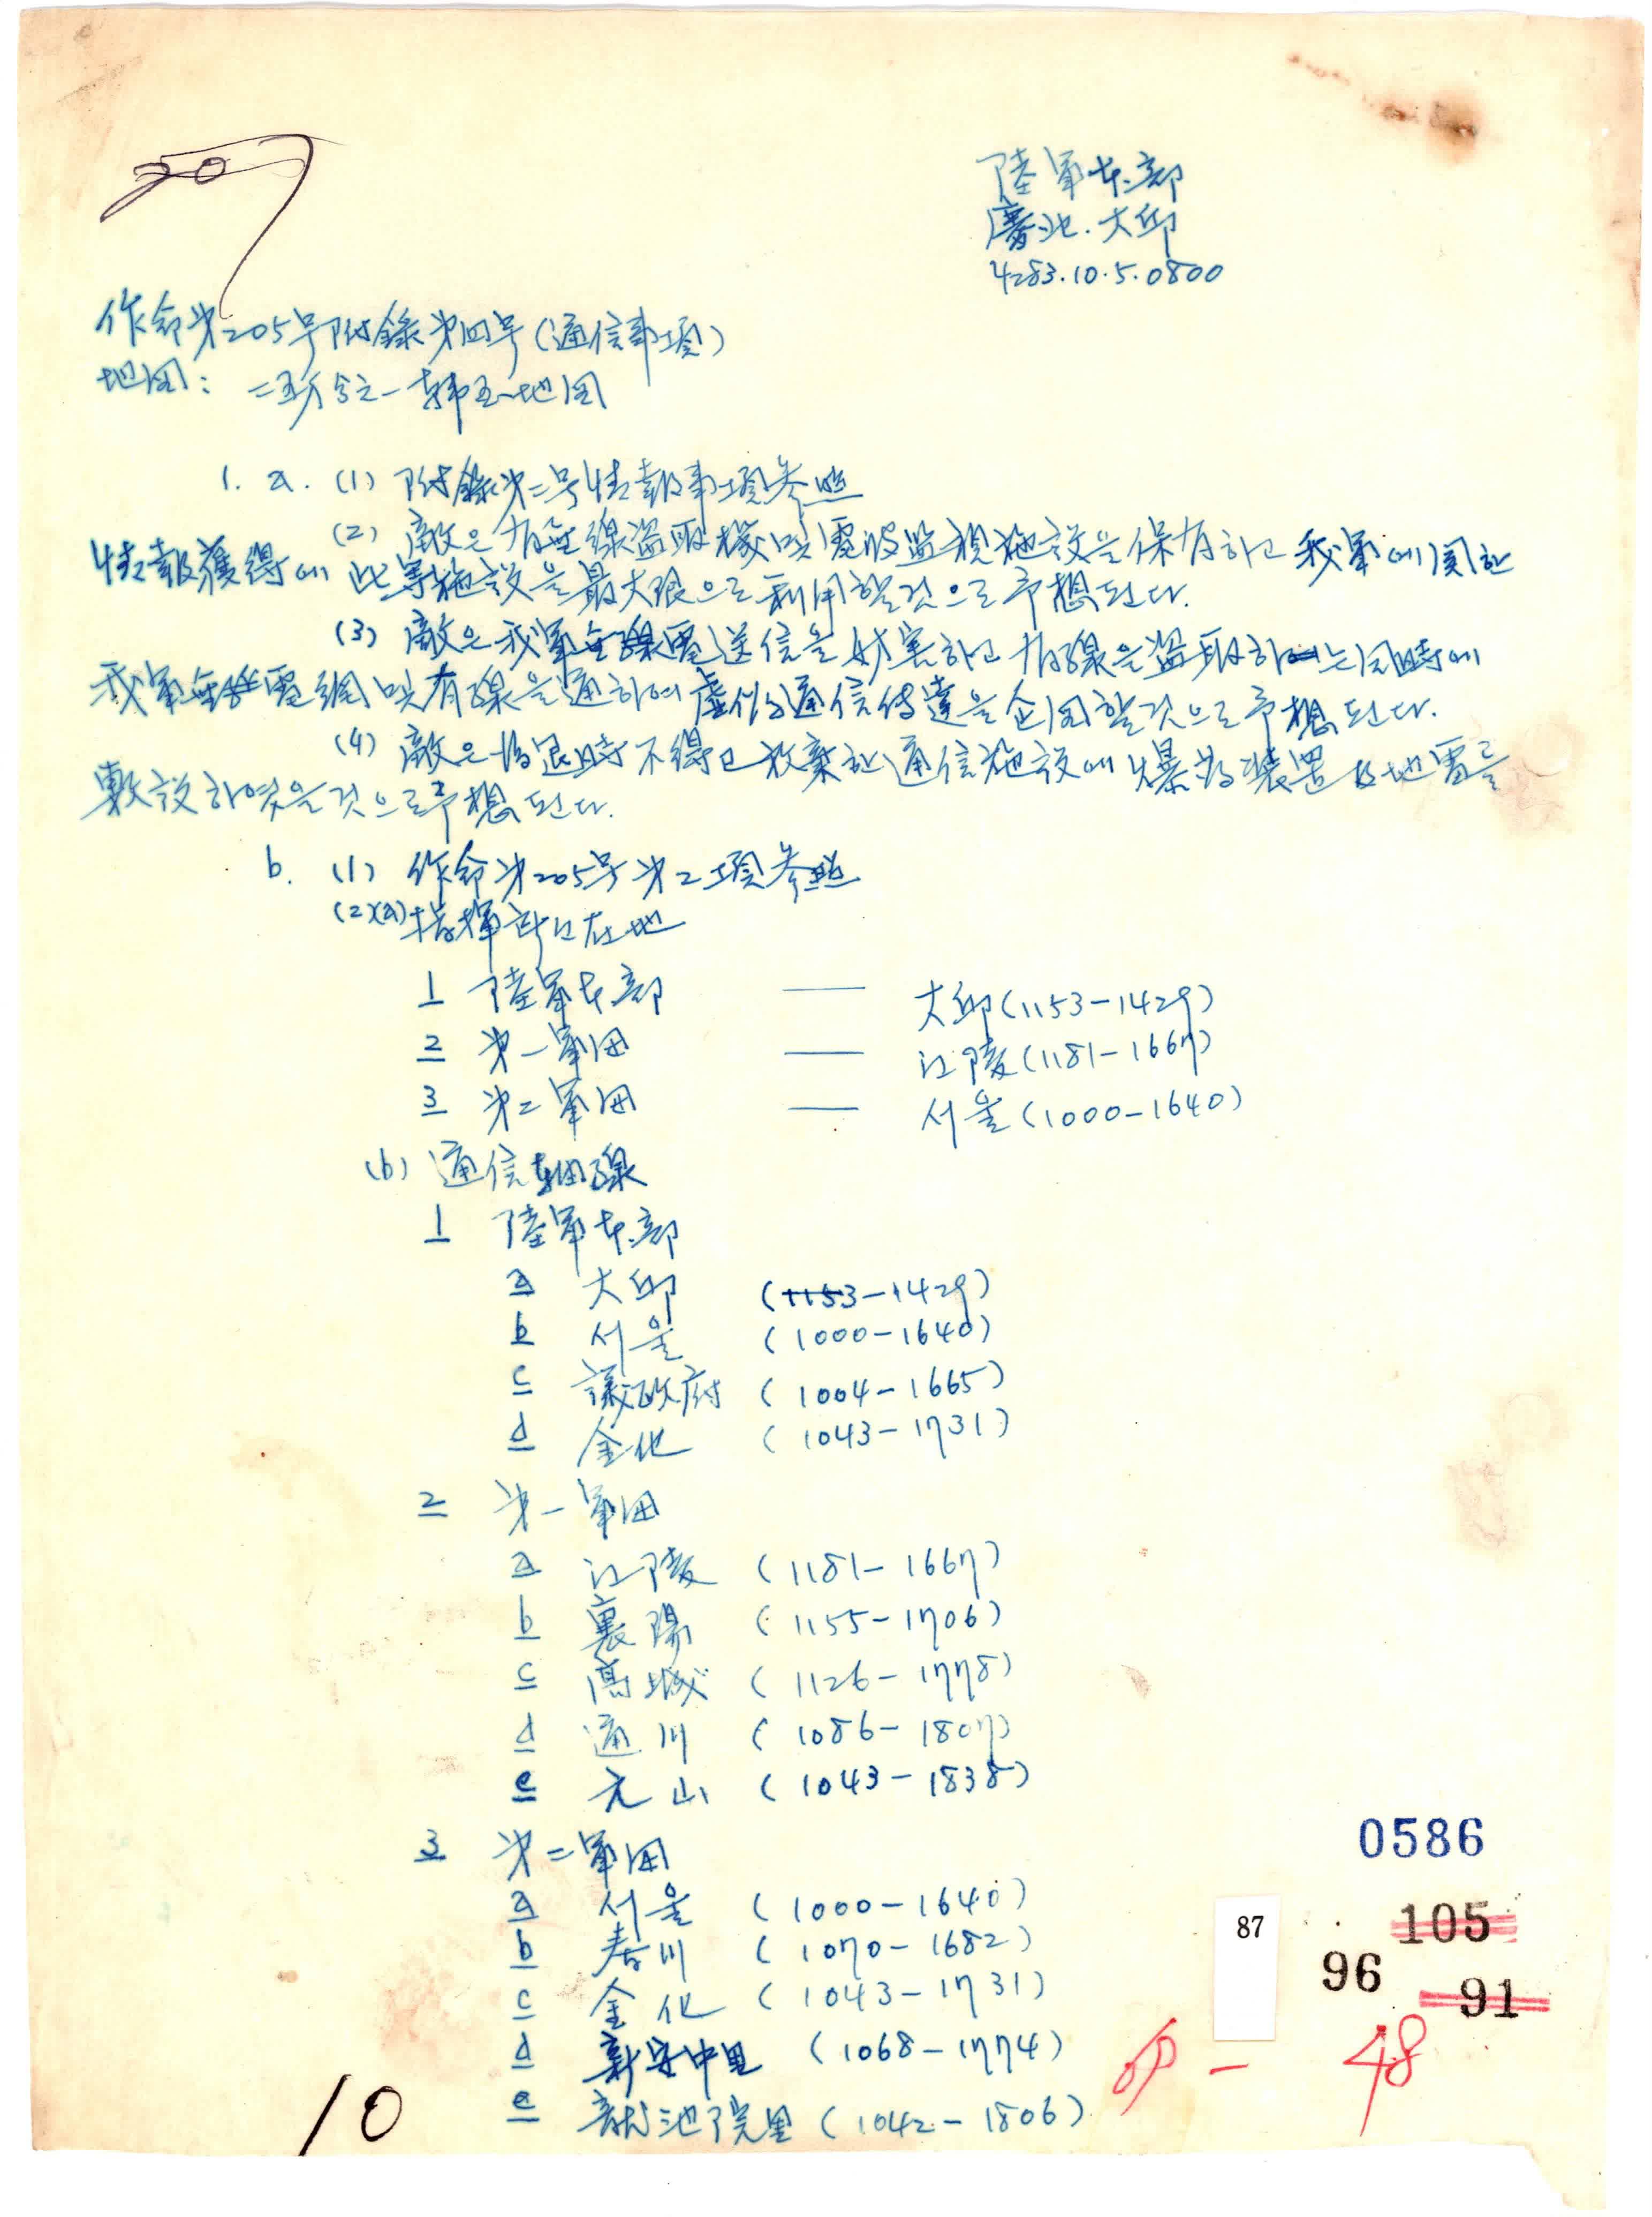 207
陸軍本部
慶北.大邱
4283.10.5.0800
作命第205号附錄第四号(通信事項)
地図: 二五万分之一韓国地図
1. a. (1) 附錄第二号情報事項参照
(2) 敵은 有無線盜取機及電波監視施設을 保有하고 我軍에 関한
情報獲得에 此等施設을 最大限으로 利用할것으로 予想된다.
(3) 敵은 我軍無線電送信을 妨害하고 有線을 盜取하는 同時에
我軍無線電網及有線을 通하여 虛偽通信傳達을 企図할것으로 予想된다.
(4) 敵은 後退時不得已放棄한 通信施設에 爆発装置及地雷를
敷設하였을것으로 予想된다.
b. (1) 作命第205号第2項参照
(2)(a) 指揮所所在地
1 陸軍本部 —— 大邱(1153-1429)
2 第一軍団 —— 江陵(1181-1667)
3 第二軍団 —— 서울(1000-1640)
(b) 通信軸線
1 陸軍本部
a 大邱 (1153-1429)
b 서울 (1000-1640)
c 議政府 (1004-1665)
d 金化 (1043-1731)
2 第一軍団
a 江陵 (1181-1667)
b 襄陽 (1155-1706)
c 高城 (1126-1778)
d 通川 (1086-1807)
e 元山 (1043-1838)
3 第二軍団
a 서울 (1000-1640)
b 春川 (1070-1682)
c 金化 (1043-1731)
d 新安中里 (1068-1774)
e 龍池院里 (1042-1806)
0586
87
105
96
91
48
10